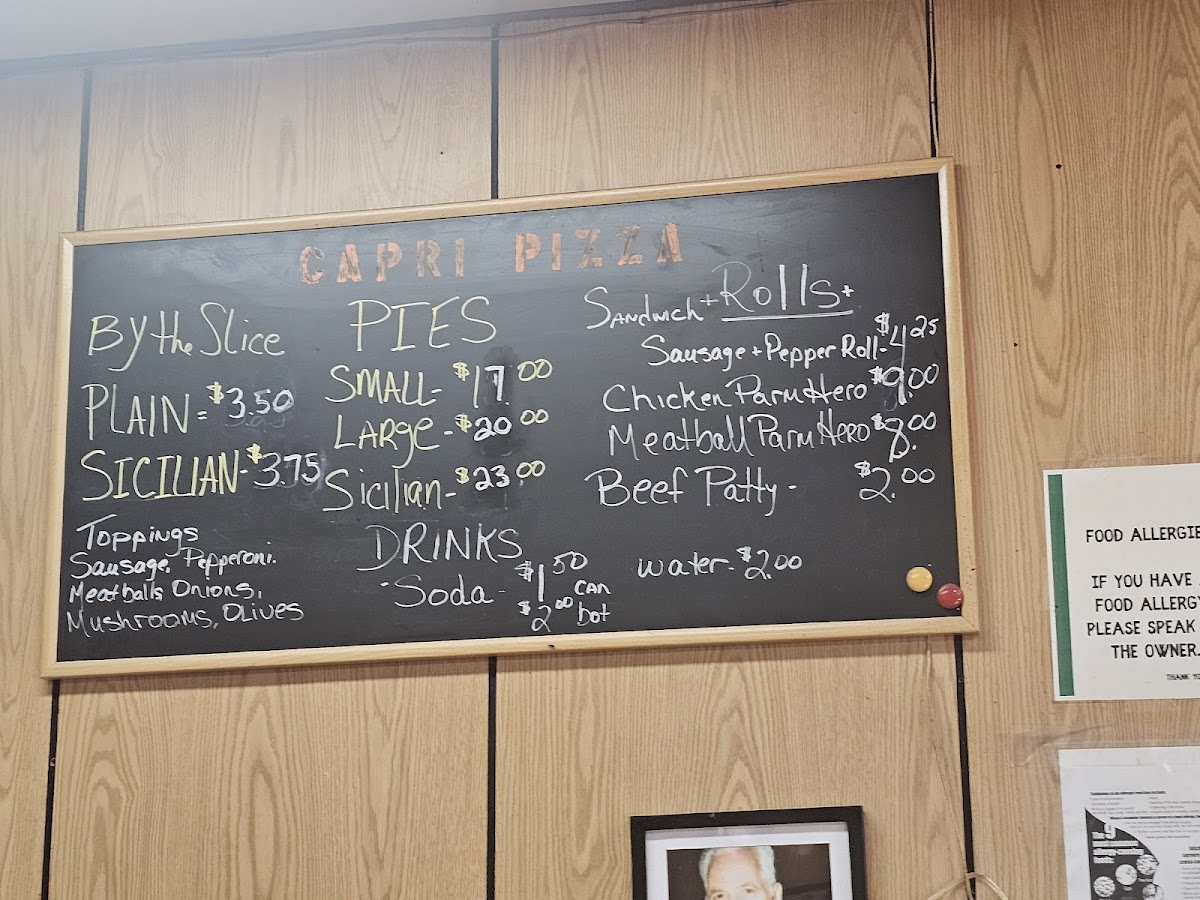 CAPRI PIZZA
By the Slice
PLAIN = $3.50
SICILIAN - $3.75
Toppings
Sausage, Pepperoni.
Meatballs Onions,
Mushrooms, OLives
PIES
SMALL - $17.00
LARge - $20.00
Sicilian - $23.00
DRINKS
- Soda - $1.50 CAN
$2.00 bot
Sandwich + Rolls +
Sausage + Pepper Roll - $4.25
Chicken Parm Hero $9.00
Meatball Parm Hero $8.00
Beef Patty - $2.00
water - $2.00
FOOD ALLERGIE
IF YOU HAVE
FOOD ALLERGY
PLEASE SPEAK
THE OWNER.
THANK YO
The 9